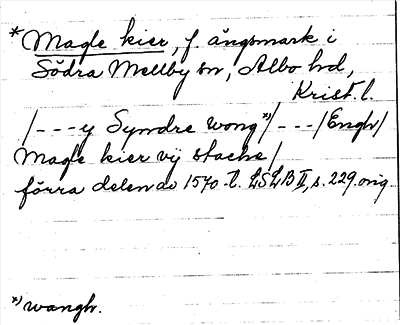 * Magle kier, f. ängsmark i
Södra Mellby sn, Albo hd,
Krist. l.
/---y Syndre wong *)/---/Engh/
Magle kier vij stache/
förra delen av 1570-t. LSLB II, s. 229. orig.
*) wangh.